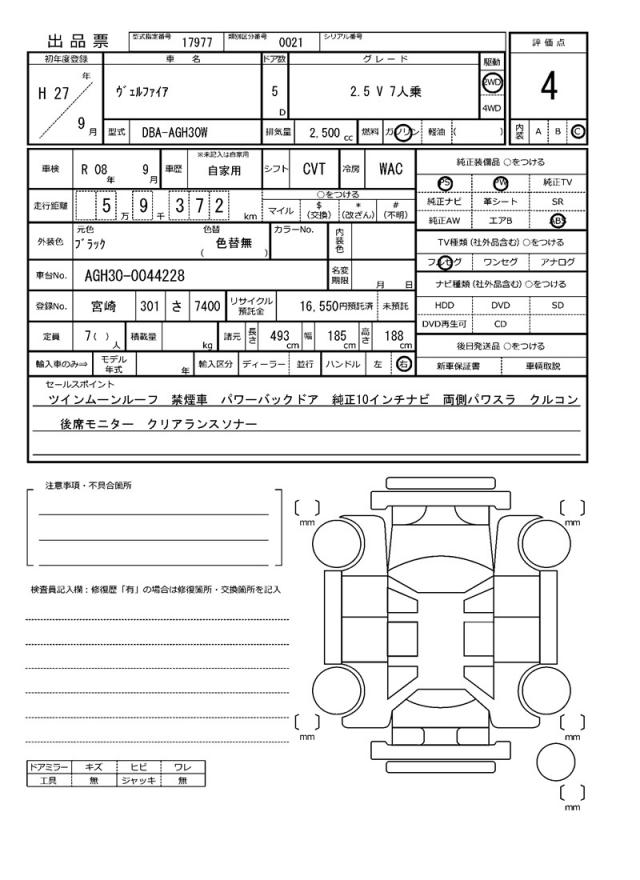 出品票 型式指定番号 17977 類別区分番号 0021 シリアル番号
評価点
4
内装 A B C
初年度登録 車名 ドア数 グレード 駆動
H 27 年 9 月
ヴェルファイア 5 D 2.5 V 7人乗 2WD
4WD
型式 DBA-AGH30W 排気量 2,500 cc 燃料 ガソリン 軽油 ( )
車検 R 08 年 9 月 車歴 ※未記入は自家用 自家用 シフト CVT 冷房 WAC
走行距離 5 万 9 千 3 7 2 km
○をつける
マイル $ (交換) * (改ざん) # (不明)
外装色 元色 ブラック 色替 ( 色替無 ) カラーNo. 内装色
車台No. AGH30-0044228 名変期限 月 日
登録No. 宮崎 301 さ 7400 リサイクル預託金 16,550円預託済 未預託
定員 7( ) 人 積載量 kg 諸元 長さ 493 cm 幅 185 cm 高さ 188 cm
輸入車のみ⇒ モデル年式 年 輸入区分 ディーラー 並行 ハンドル 左 右
純正装備品 ○をつける
PS PW 純正TV
純正ナビ 革シート SR
純正AW エアB ABS
TV種類 (社外品含む) ○をつける
フルセグ ワンセグ アナログ
ナビ種類 (社外品含む) ○をつける
HDD DVD SD
DVD再生可 CD
後日発送品 ○をつける
新車保証書 車輌取説
セールスポイント
ツインムーンルーフ 禁煙車 パワーバックドア 純正10インチナビ 両側パワスラ クルコン
後席モニター クリアランスソナー
注意事項・不具合箇所
検査員記入欄:修復歴「有」の場合は修復箇所・交換箇所を記入
ドアミラー キズ ヒビ ワレ
工具 無 ジャッキ 無
mm
mm
mm
mm
mm